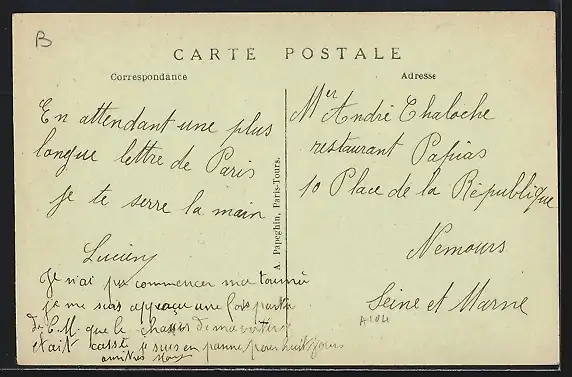 B
CARTE POSTALE
Correspondance
Adresse
En attendant une plus
longue lettre de Paris
je te serre la main
Lucien
Je n'ai pu commencer ma tournée
je me suis aperçu une fois partie
de C.M. que le chassis de ma voiture
était cassé je suis en panne pour huit jours
A. Papeghin, Paris-Tours.
Mer André Chaloche
restaurant Papias
10 Place de la République
Nemours
Seine et Marne
A104